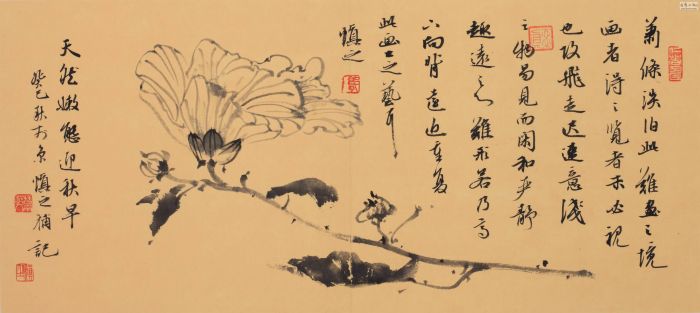 蕭條淡泊此難畫之境
画者得之覽者未必視
也故飛走迟速意淺
之物易見而闲和严静
趣遠之心難形若乃高
下向背遠近重复
此画工之藝耳
慎之
天然嫩態迎秋早
癸巳秋於京慎之補記